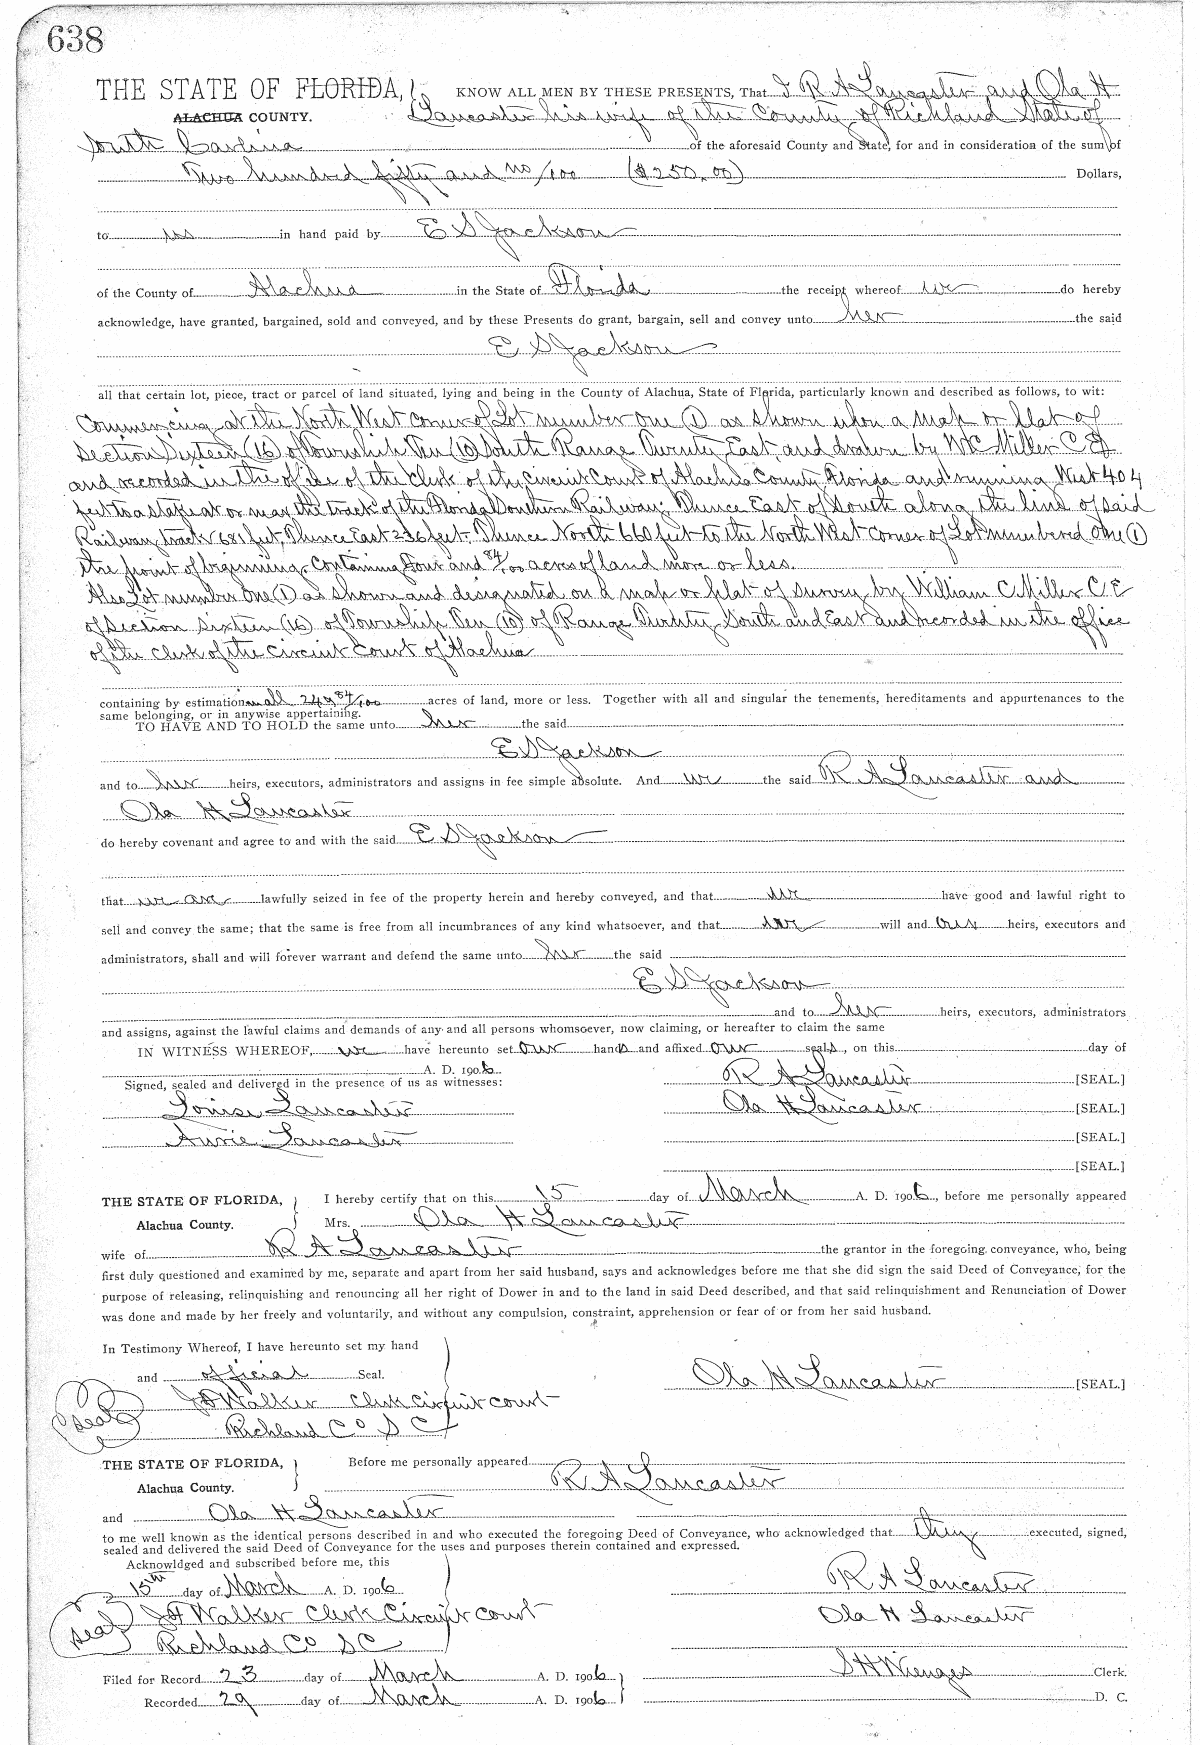 638
THE STATE OF FLORIDA, KNOW ALL MEN BY THESE PRESENTS, That I R A Lancaster and Ola H
ALACHUA COUNTY. Lancaster his wife of the County of Richland State of
South Carolina of the aforesaid County and State, for and in consideration of the sum of
Two hundred fifty and no/100 ($250.00) Dollars,
to us in hand paid by E S Jackson
of the County of Alachua in the State of Florida the receipt whereof we do hereby
acknowledge, have granted, bargained, sold and conveyed, and by these Presents do grant, bargain, sell and convey unto her the said
E S Jackson
all that certain lot, piece, tract or parcel of land situated, lying and being in the County of Alachua, State of Florida, particularly known and described as follows, to wit:
Commencing at the North West corner of Lot number one (1) as shown upon a map or plat of
Section Sixteen (16) of Township Ten (10) South Range Twenty East, and drawn by Wm C Miller C E
and recorded in the office of the Clerk of the Circuit Court of Alachua County, Florida and running West 404
feet to a stake at or near the track of the Florida Southern Railway; Thence East of South along the line of said
Railway track 681 feet, Thence East 236 feet. Thence North 660 feet to the North West Corner of Lot numbered One (1)
the point of beginning. Containing Four and 84/100 acres of land more or less.
Also Lot number One (1) as shown and designated on a map or plat of survey by William C Miller C E
of Section Sixteen (16) of Township Ten (10) of Range Twenty South and East and recorded in the office
of the Clerk of the Circuit Court of Alachua
containing by estimation in all 24 84/100 acres of land, more or less. Together with all and singular the tenements, hereditaments and appurtenances to the
same belonging, or in anywise appertaining.
TO HAVE AND TO HOLD the same unto her the said
E S Jackson
and to her heirs, executors, administrators and assigns in fee simple absolute. And we the said R A Lancaster and
Ola H Lancaster
do hereby covenant and agree to and with the said E S Jackson
that we are lawfully seized in fee of the property herein and hereby conveyed, and that we have good and lawful right to
sell and convey the same; that the same is free from all incumbrances of any kind whatsoever, and that we will and our heirs, executors and
administrators, shall and will forever warrant and defend the same unto her the said
E S Jackson
and to her heirs, executors, administrators
and assigns, against the lawful claims and demands of any and all persons whomsoever, now claiming, or hereafter to claim the same
IN WITNESS WHEREOF, we have hereunto set our hands and affixed our seals, on this day of
A. D. 1906
Signed, sealed and delivered in the presence of us as witnesses: R A Lancaster [SEAL.]
Louise Lancaster Ola H Lancaster [SEAL.]
Lancaster [SEAL.]
[SEAL.]
THE STATE OF FLORIDA, I hereby certify that on this 15 day of March A. D. 1906, before me personally appeared
Alachua County. Mrs. Ola H Lancaster
wife of R A Lancaster the grantor in the foregoing conveyance, who, being
first duly questioned and examined by me, separate and apart from her said husband, says and acknowledges before me that she did sign the said Deed of Conveyance, for the
purpose of releasing, relinquishing and renouncing all her right of Dower in and to the land in said Deed described, and that said relinquishment and Renunciation of Dower
was done and made by her freely and voluntarily, and without any compulsion, constraint, apprehension or fear of or from her said husband.
In Testimony Whereof, I have hereunto set my hand
and official Seal. Ola H Lancaster [SEAL.]
Seal Walker Clerk Circuit Court
Richland Co S C
THE STATE OF FLORIDA, Before me personally appeared
Alachua County. R A Lancaster
and Ola H Lancaster
to me well known as the identical persons described in and who executed the foregoing Deed of Conveyance, who acknowledged that they executed, signed,
sealed and delivered the said Deed of Conveyance for the uses and purposes therein contained and expressed.
Acknowldged and subscribed before me, this
15th day of March A. D. 1906 R A Lancaster
Seal Walker Clerk Circuit Court Ola H Lancaster
Richland Co S C
Filed for Record 23 day of March A. D. 1906 S H Wienges Clerk.
Recorded 29 day of March A. D. 1906 D. C.